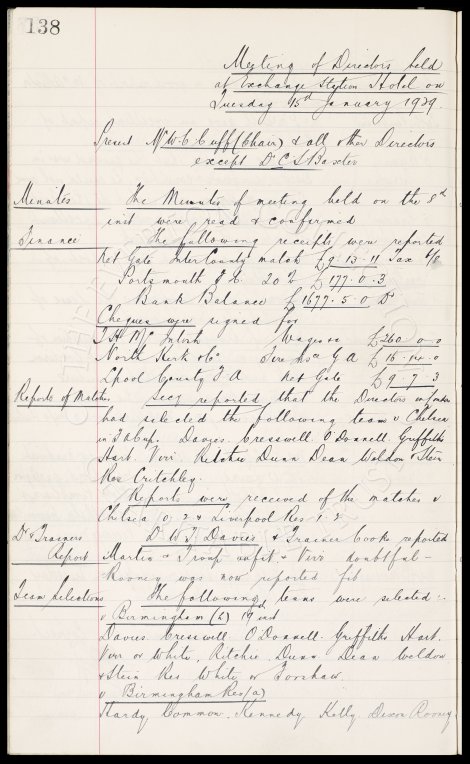 138
Meeting of Directors held
at Exchange Station Hotel on
Tuesday 15th January 1929.
Present Mr W. C. Cuff (Chair) & all other Directors
except Dr C. S. Baxter
Minutes The Minutes of meeting held on the 8th
inst were read & confirmed
Finance The following receipts were reported
Net Gate InterCounty match £9. 13. 11 Tax
Portsmouth F.C. 20% £177. 0. 3
Bank Balance £1677. 5. 0
Cheques were signed for
T. H. McIntosh Wages &c £260 0 0
North Kerk & Co Fire Ince G A £16. 14. 0
Lpool County F A Net Gate £9. 7. 3
Reports of Matches Secy reported that the Directors in London
had selected the following team v Chelsea
in F A Cup. Davies. Cresswell. O'Donnell. Griffiths
Hart. Virr. Ritchie Dunn Dean Weldon & Stein
Res Critchley.
Reports were received of the matches v
Chelsea 0. 2 & Liverpool Res 1. 2
Dr & Trainers Dr W. F. Davies & Trainer Cooke reported
Report Martin & Troup unfit & Virr doubtful -
Rooney was now reported fit
Team Selections The following teams were selected :-
v Birmingham (h) 19th inst
Davies Cresswell O'Donnell. Griffiths Hart.
Virr or White, Ritchie Dunn Dean Weldon
& Stein Res White or Forshaw.
v Birmingham Res (a)
Hardy Common. Kennedy Kelly Dixon Rooney